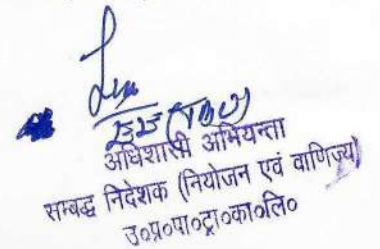 अधिशासी अभियन्ता
सम्बद्ध निदेशक (नियोजन एवं वाणिज्य)
उ०प्र०पा०ट्रा०का०लि०